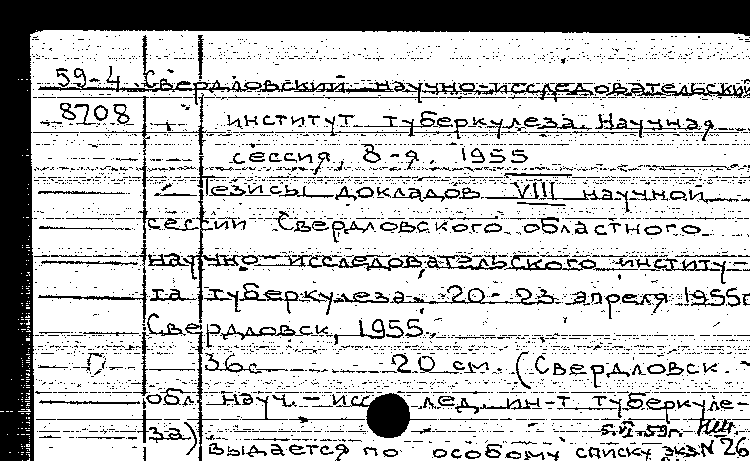 59-4 Свердловский научно-исследовательский
8708 институт туберкулеза. Научная
сессия, 8-я. 1955
Тезисы докладов VIII научной
сессии Свердловского областного
научно-исследовательского институ-
та туберкулеза. 20-23 апреля 1955г
Свердловск, 1955.
36с 20 см. (Свердловск.
обл. науч.-исслед. ин-т туберкуле-
за) 5.VI.59г.
выдается по особому списку экз N 26